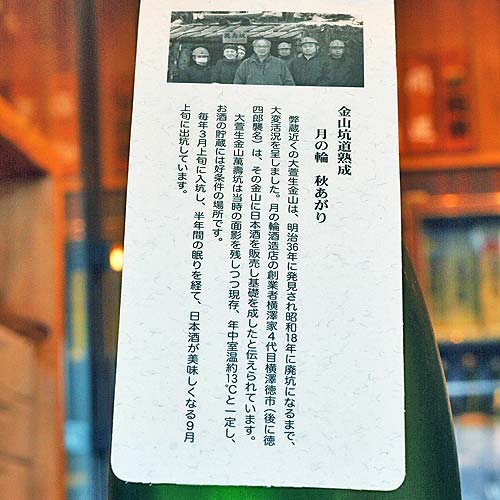 萬寿坑
金山坑道熟成
月の輪 秋あがり
弊蔵近くの大萱生金山は、明治36年に発見され昭和18年に廃坑になるまで、
大変活況を呈しました。月の輪酒造店の創業者横澤家4代目横澤徳市(後に徳
四郎襲名)は、その金山に日本酒を販売し基礎を成したと伝えられています。
大萱生金山萬壽坑は当時の面影を残しつつ現存、年中室温約13℃と一定し、
お酒の貯蔵には好条件の場所です。
毎年3月上旬に入坑し、半年間の眠りを経て、日本酒が美味しくなる9月
上旬に出坑しています。